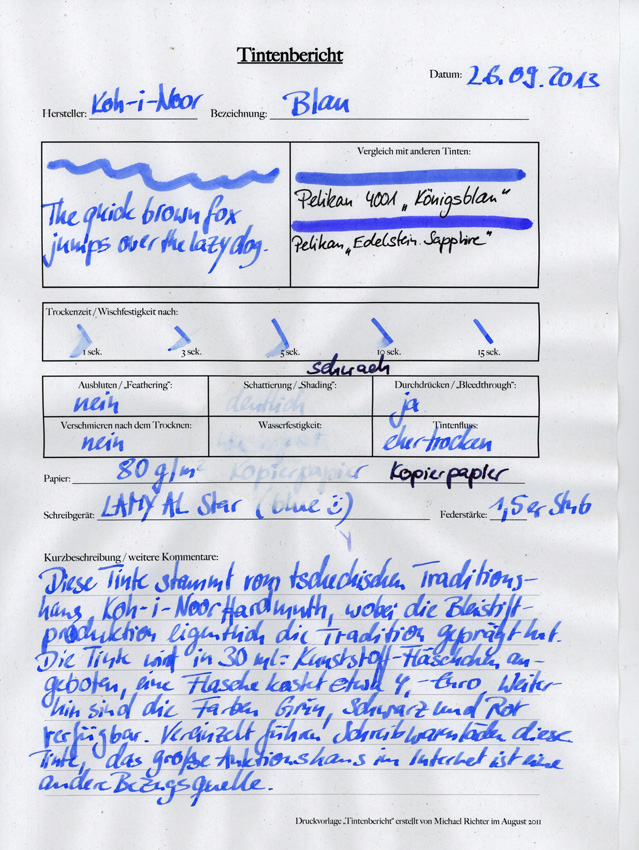 Tintenbericht
Datum: 26.09.2013
Hersteller: Koh-i-Noor Bezeichnung: Blau
The quick brown fox
jumps over the lazy dog.
Vergleich mit anderen Tinten:
Pelikan 4001 „Königsblau"
Pelikan „Edelstein Sapphire"
Trockenzeit / Wischfestigkeit nach:
1 sek. 3 sek. 5 sek. 10 sek. 15 sek.
schwach
Ausbluten / „Feathering": Schattierung / „Shading": Durchdrücken / „Bleedthrough":
nein deutlich ja
Verschmieren nach dem Trocknen: Wasserfestigkeit: Tintenfluss:
nein eher trocken
Papier: 80 g/m² Kopierpapier Kopierpapier
Schreibgerät: LAMY AL Star (blue :)) Federstärke: 1,5er Stub
Kurzbeschreibung / weitere Kommentare:
Diese Tinte stammt vom tschechischen Traditions-
haus Koh-i-Noor Hardmuth, wobei die Bleistift-
produktion eigentlich die Tradition geprägt hat.
Die Tinte wird in 30 ml-Kunststoff-Fläschchen an-
geboten, eine Flasche kostet etwa 4,- Euro. Weiter-
hin sind die Farben Grün, Schwarz und Rot
verfügbar. Vereinzelt führen Schreibwarenläden diese
Tinte, das große Auktionshaus im Internet ist eine
andere Bezugsquelle.
Druckvorlage „Tintenbericht" erstellt von Michael Richter im August 2011